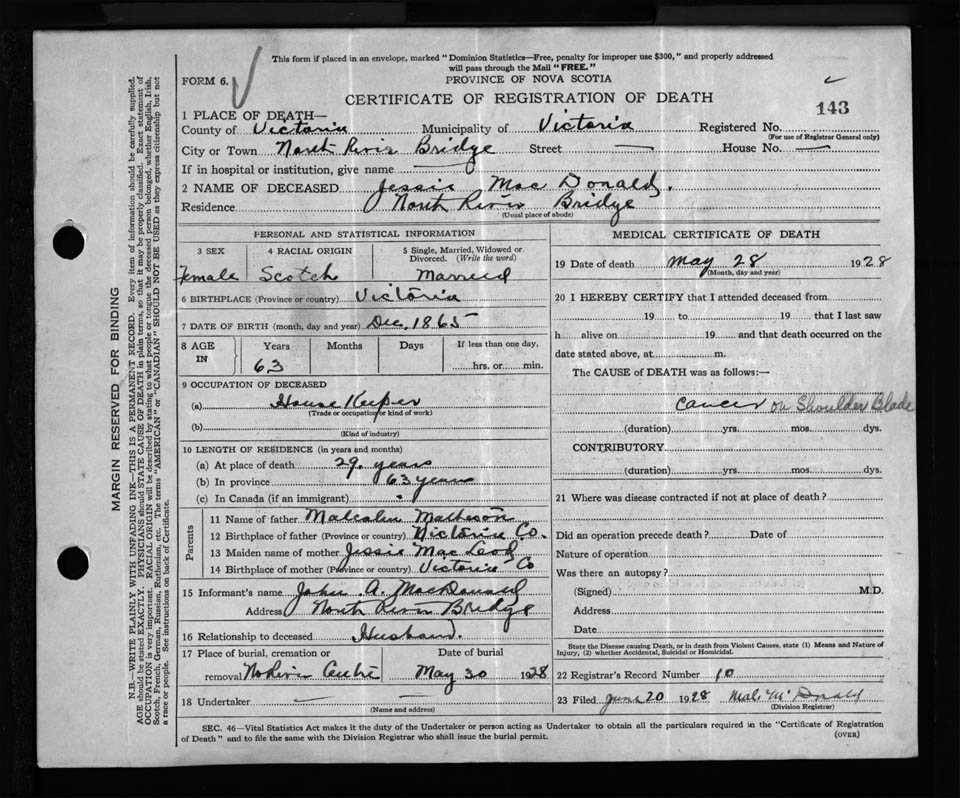 This form if placed in an envelope, marked "Dominion Statistics—Free, penalty for improper use $300," and properly addressed
will pass through the Mail "FREE."
FORM 6.
PROVINCE OF NOVA SCOTIA
CERTIFICATE OF REGISTRATION OF DEATH
143
1 PLACE OF DEATH—
County of Victoria Municipality of Victoria Registered No.
(For use of Registrar General only)
City or Town North River Bridge Street — House No. —
If in hospital or institution, give name —
2 NAME OF DECEASED Jessie Mac Donald.
Residence North River Bridge
(Usual place of abode)
PERSONAL AND STATISTICAL INFORMATION
3 SEX 4 RACIAL ORIGIN 5 Single, Married, Widowed or Divorced. (Write the word)
Female Scotch Married
6 BIRTHPLACE (Province or country) Victoria
7 DATE OF BIRTH (month, day and year) Dec, 1865
8 AGE IN Years Months Days If less than one day,
63 hrs. or min.
9 OCCUPATION OF DECEASED
(a) House Keeper
(Trade or occupation or kind of work)
(b)
(Kind of industry)
10 LENGTH OF RESIDENCE (in years and months)
(a) At place of death 29. years
(b) In province 63 years
(c) In Canada (if an immigrant)
Parents
11 Name of father Malcolm Matheson
12 Birthplace of father (Province or country) Victoria Co.
13 Maiden name of mother Jessie Mac Leod
14 Birthplace of mother (Province or country) Victoria Co
15 Informant's name John A. MacDonald
Address North River Bridge
16 Relationship to deceased Husband.
17 Place of burial, cremation or Date of burial
removal May 30 1928
18 Undertaker — —
(Name and address)
MEDICAL CERTIFICATE OF DEATH
19 Date of death May 28 1928
(Month, day and year)
20 I HEREBY CERTIFY that I attended deceased from
19 to 19 that I last saw
h alive on 19 and that death occurred on the
date stated above, at m.
The CAUSE of DEATH was as follows:—
Cancer on Shoulder Blade
(duration) yrs. mos. dys.
CONTRIBUTORY
(duration) yrs. mos. dys.
21 Where was disease contracted if not at place of death?
Did an operation precede death? Date of
Nature of operation
Was there an autopsy?
(Signed) M.D.
Address
Date
State the Disease causing Death, or in death from Violent Causes, state (1) Means and Nature of
Injury, (2) whether Accidental, Suicidal or Homicidal.
22 Registrar's Record Number 10
23 Filed June 20 1928 Mal. McDonald
(Division Registrar)
SEC. 46—Vital Statistics Act makes it the duty of the Undertaker or person acting as Undertaker to obtain all the particulars required in the "Certificate of Registration
of Death" and to file the same with the Division Registrar who shall issue the burial permit.
(OVER)
MARGIN RESERVED FOR BINDING
N.B.—WRITE PLAINLY WITH UNFADING INK—THIS IS A PERMANENT RECORD. Every item of information should be carefully supplied.
AGE should be stated EXACTLY. PHYSICIANS should STATE CAUSE OF DEATH in plain terms, so that it may be properly classified. Exact statement of
OCCUPATION is very important. RACIAL ORIGIN will be described by stating to what people or tongue the deceased person belonged, whether English, Irish,
Scotch, French, German, Russian, Ruthenian, etc. The terms "AMERICAN" or "CANADIAN" SHOULD NOT BE USED as they express citizenship but not
a race or people. See instructions on back of Certificate.